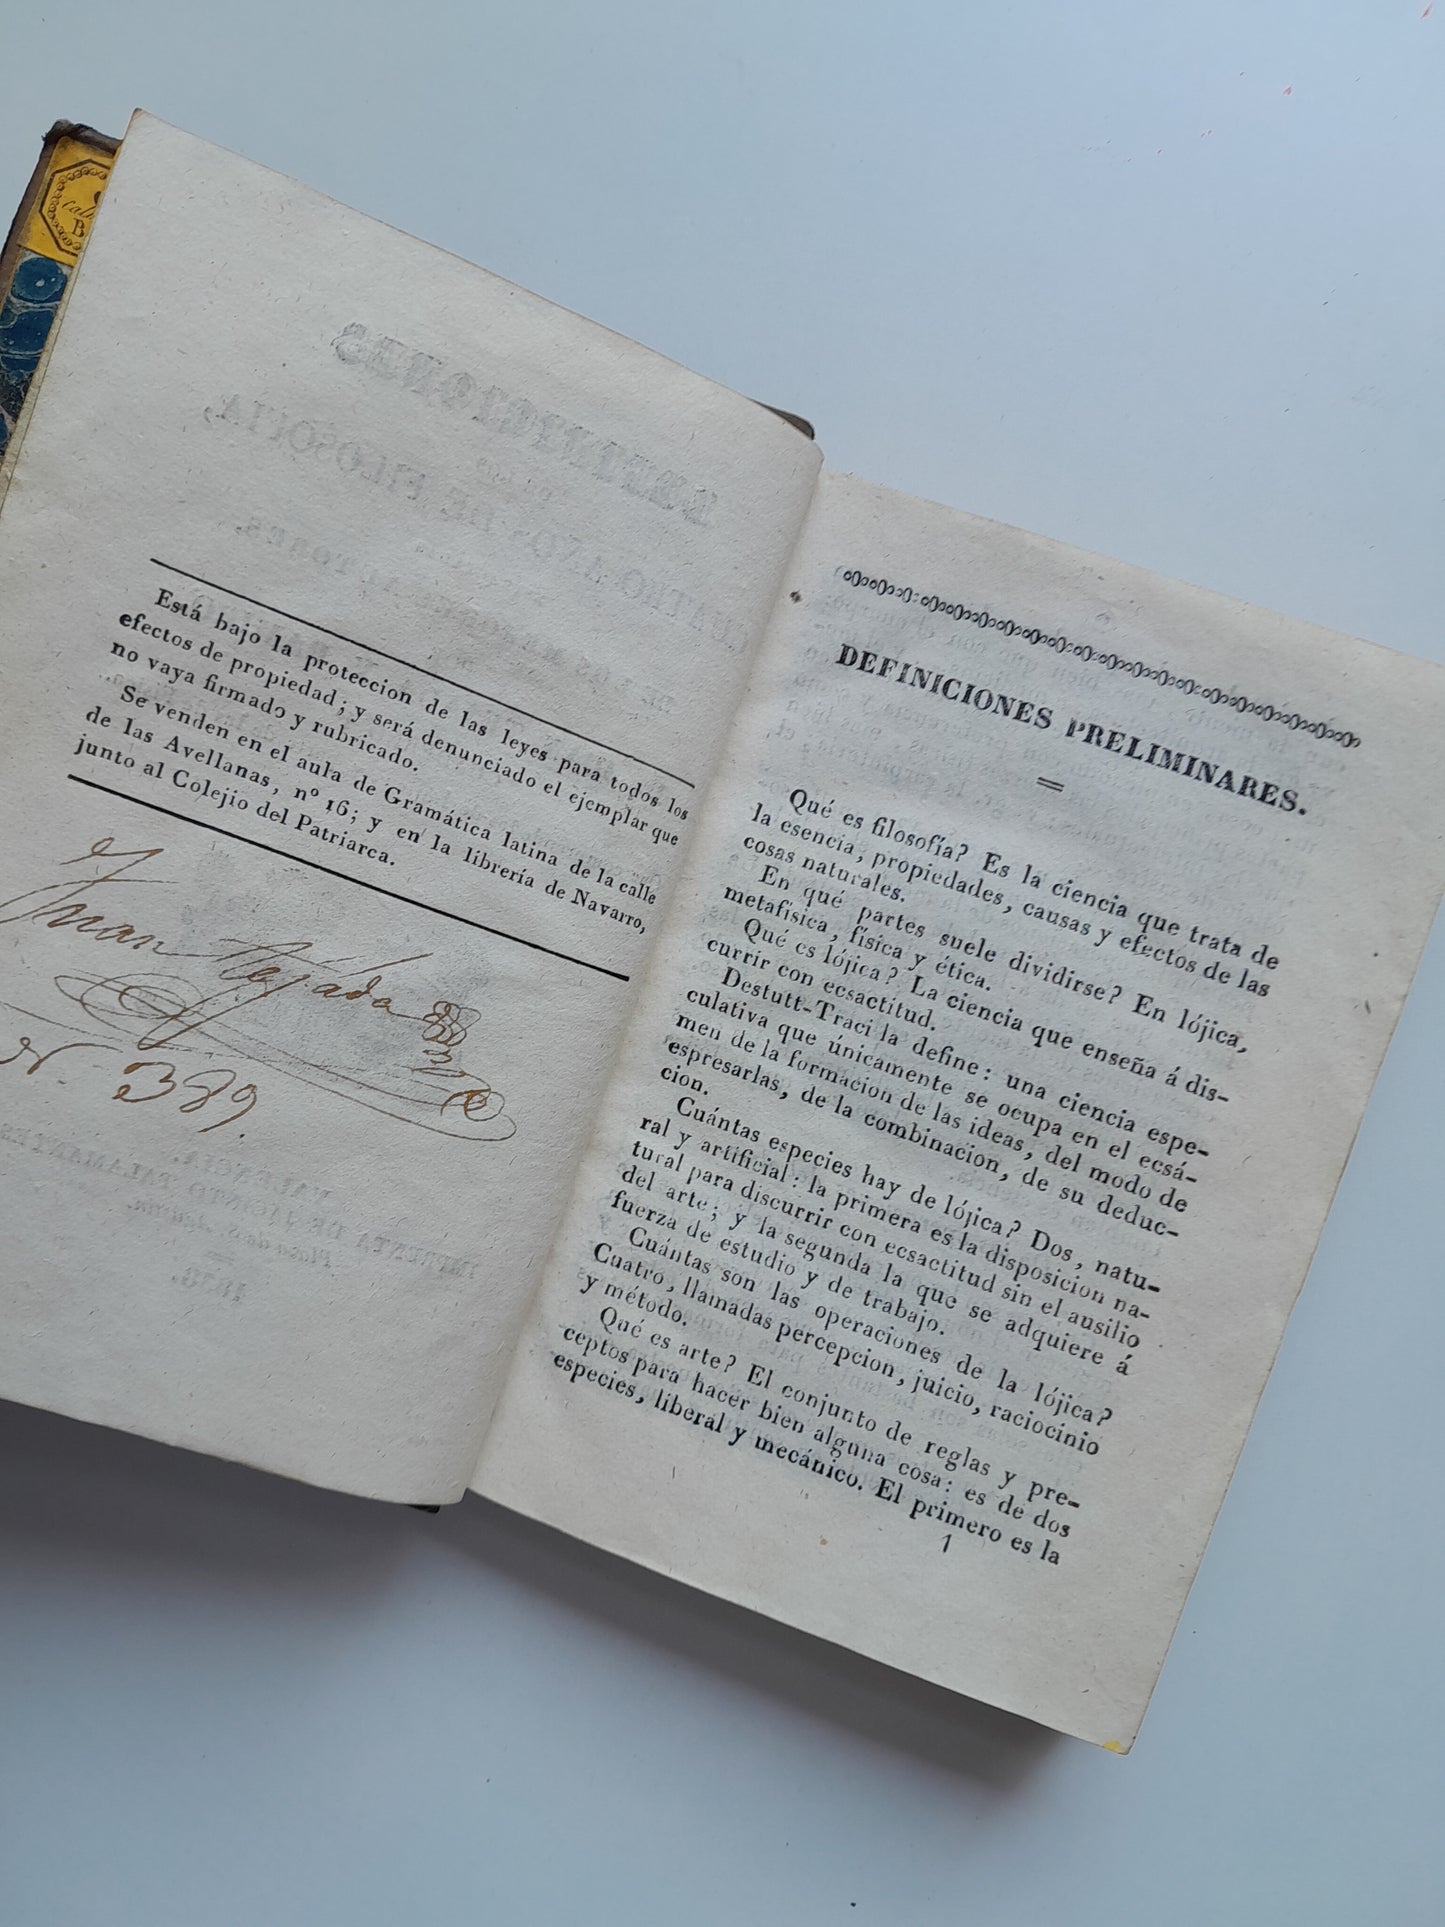 Está bajo la proteccion de las leyes para todos los
efectos de propiedad; y será denunciado el ejemplar que
no vaya firmado y rubricado.
Se venden en el aula de Gramática latina de la calle
de las Avellanas, nº 16; y en la librería de Navarro,
junto al Colejio del Patriarca.
Juan Tejada
N. 389.
DEFINICIONES PRELIMINARES.
Qué es filosofía? Es la ciencia que trata de
la esencia, propiedades, causas y efectos de las
cosas naturales.
En qué partes suele dividirse? En lójica,
metafísica, física y ética.
Qué es lójica? La ciencia que enseña á dis-
currir con ecsactitud.
Destutt-Traci la define: una ciencia espe-
culativa que únicamente se ocupa en el ecsá-
men de la formacion de las ideas, del modo de
espresarlas, de la combinacion, de su deduc-
cion.
Cuántas especies hay de lójica? Dos, natu-
ral y artificial: la primera es la disposicion na-
tural para discurrir con ecsactitud sin el ausilio
del arte; y la segunda la que se adquiere á
fuerza de estudio y de trabajo.
Cuántas son las operaciones de la lójica?
Cuatro, llamadas percepcion, juicio, raciocinio
y método.
Qué es arte? El conjunto de reglas y pre-
ceptos para hacer bien alguna cosa: es de dos
especies, liberal y mecánico. El primero es la
1